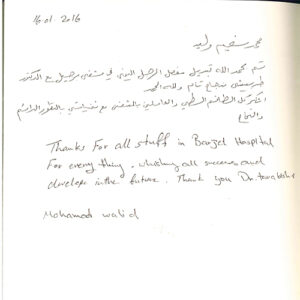 16.01.2016
محمد وليد
تم بحمد الله تبديل مفصل الرجل اليمنى في مستشفى برجيل مع الدكتور
بنجاح تام ولله الحمد
اشكر كل الطاقم الطبي والعاملين بالمشفى مع تمنياتي بالتطور الدائم
والنجاح
Thanks For all stuff in Burjel Hospital
For every thing, whishing all success and
develope in the future. Thank you Dr.
Mohamed walid